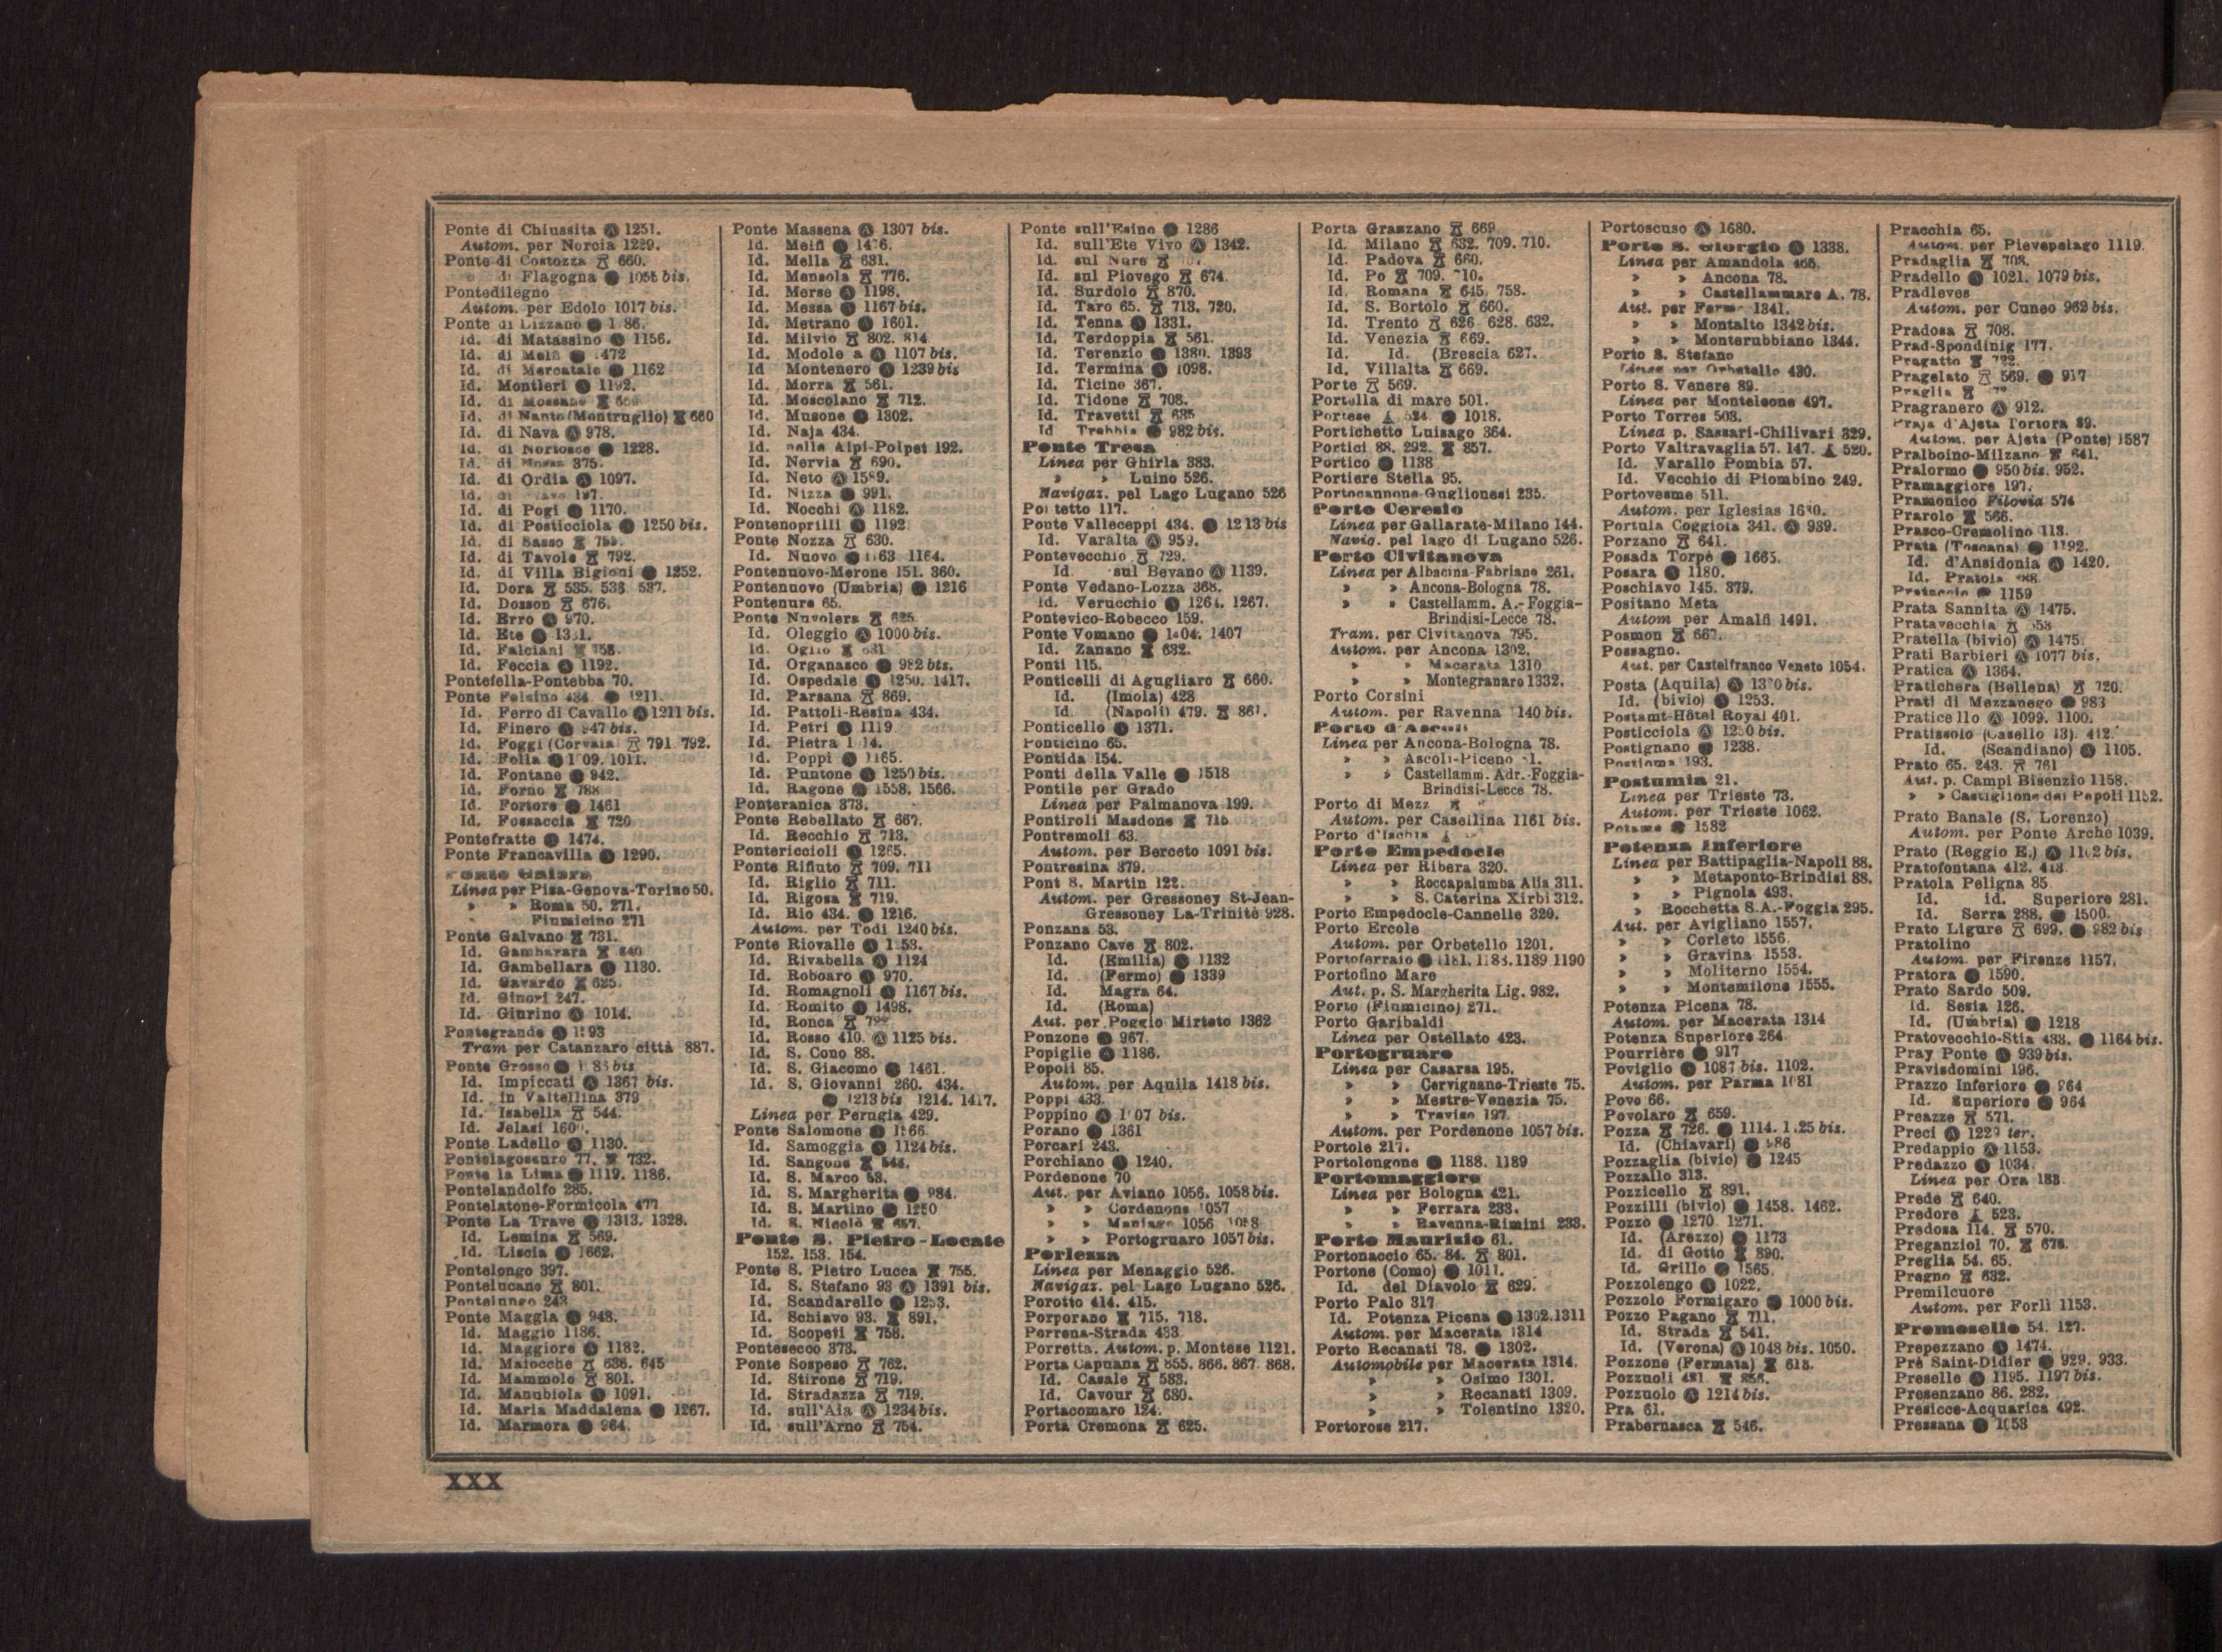 Ponte di Chiussita Ⓐ 1251.
Autom. per Norcia 1229.
Ponte di Costozza 660.
di Flagogna ● 1055 bis.
Pontedilegno
Autom. per Edolo 1017 bis.
Ponte di Lizzano ●
Id. di Matassino Ⓐ 1156.
Id. di Melfi ●
Id. di Mercatale ● 1162
Id. Montieri ● 1192.
Id. di Mossano
Id. di Nanto (Montruglio) 660
Id. di Nava Ⓐ 978.
Id. di Nortosce ● 1228.
Id. di 375.
Id. di Ordia Ⓐ 1097.
Id. di
Id. di Pogi ● 1170.
Id. di Posticciola ● 1250 bis.
Id. di Sasso
Id. di Tavole 792.
Id. di Villa Bigioni ● 1252.
Id. Dora 535. 536. 537.
Id. Dosson 676.
Id. Erro Ⓐ 970.
Id. Ete ●
Id. Falciani
Id. Feccia Ⓐ 1192.
Pontefella-Pontebba 70.
Ponte Felsino 434. ● 1211.
Id. Ferro di Cavallo Ⓐ 1211 bis.
Id. Finero Ⓐ 947 bis.
Id. Foggi (Corvaia) 791. 792.
Id. Folla ● 1011.
Id. Fontane ● 942.
Id. Forno 788
Id. Fortore ● 1461
Id. Fossaccia 720
Pontefratte ● 1474.
Ponte Francavilla ● 1290.
Ponte Galera
Linea per Pisa-Genova-Torino 50.
» » Roma 50. 271.
Fiumicino 271
Ponte Galvano 731.
Id. Gambarara 840
Id. Gambellara ● 1130.
Id. Gavardo 625.
Id. Ginori 247.
Id. Giurino Ⓐ 1014.
Pontegrande ● 1193
Tram per Catanzaro città 887.
Ponte Grosso ●
Id. Impiccati Ⓐ 1367 bis.
Id. in Valtellina 379
Id. Isabella 544.
Id. Jelasi
Ponte Ladello Ⓐ 1130.
Pontelagoscuro 77. 732.
Ponte la Lima ● 1119. 1186.
Pontelandolfo 285.
Pontelatone-Formicola 477
Ponte La Trave ● 1313. 1328.
Id. Lemina 569.
Id. Liscia ● 1662.
Pontelongo 397.
Pontelucano 801.
Pontelungo 243
Ponte Maggia ● 948.
Id. Maggio 1186.
Id. Maggiore Ⓐ 1182.
Id. Maiocche 636. 645
Id. Mammolo 801.
Id. Manubiola ● 1091.
Id. Maria Maddalena ● 1267.
Id. Marmora ● 964.
Ponte Massena Ⓐ 1307 bis.
Id. Melfi ● 1476.
Id. Mella 631.
Id. Mensola 776.
Id. Merse Ⓐ 1198.
Id. Messa ● 1167 bis.
Id. Metrano Ⓐ 1601.
Id. Milvio 802. 814
Id. Modolena Ⓐ 1107 bis.
Id Montenero Ⓐ 1239 bis
Id. Morra 561.
Id. Moscolano 712.
Id. Musone ● 1302.
Id. Naja 434.
Id. nelle Alpi-Polpet 192.
Id. Nervia 690.
Id. Neto Ⓐ 1589.
Id. Nizza ● 991.
Id. Nocchi Ⓐ 1182.
Pontenoprilli ● 1192
Ponte Nozza 630.
Id. Nuovo ● 1164.
Pontenuovo-Merone 151. 360.
Pontenuovo (Umbria) ● 1216
Pontenure 65.
Ponte Nuvolera 625
Id. Oleggio Ⓐ 1000 bis.
Id. Oglio
Id. Organasco ● 982 bis.
Id. Ospedale ● 1250. 1417.
Id. Parsana 869.
Id. Pattoli-Resina 434.
Id. Petri ● 1119
Id. Pietra
Id. Poppi ● 1165.
Id. Puntone ● 1250 bis.
Id. Ragone ● 1558. 1566.
Ponteranica 373.
Ponte Rebellato 667.
Id. Recchio 713.
Pontericcioli ● 1265.
Ponte Rifiuto 709. 711
Id. Riglio 711.
Id. Rigosa 719.
Id. Rio 434. ● 1216.
Autom. per Todi 1240 bis.
Ponte Riovalle ●
Id. Rivabella Ⓐ 1124
Id. Roboaro ● 970.
Id. Romagnoli Ⓐ 1167 bis.
Id. Romito ● 1498.
Id. Ronca
Id. Rosso 410. Ⓐ 1125 bis.
Id. S. Cono 88.
Id. S. Giacomo ● 1461.
Id. S. Giovanni 260. 434.
● 1213 bis 1214. 1417.
Linea per Perugia 429.
Ponte Salomone ●
Id. Samoggia ● 1124 bis.
Id. Sangone
Id. S. Marco 53.
Id. S. Margherita ● 984.
Id. S. Martino ● 1250
Id. S. Nicolò 657.
Ponte S. Pietro-Locate
152. 153. 154.
Ponte S. Pietro Lucca 755.
Id. S. Stefano 93 Ⓐ 1391 bis.
Id. Scandarello ●
Id. Schiavo 93. 891.
Id. Scopeti 758.
Pontesecco 373.
Ponte Sospeso 762.
Id. Stirone 719.
Id. Stradazza 719.
Id. sull'Aia Ⓐ 1234 bis.
Id. sull'Arno 754.
Ponte sull'Esino ● 1286
Id. sull'Ete Vivo Ⓐ 1342.
Id. sul Nure
Id. sul Piovego 674.
Id. Surdolo 870.
Id. Taro 65. 713. 720.
Id. Tenna ● 1331.
Id. Terdoppia 561.
Id. Terenzio ● 1393
Id. Termina Ⓐ 1098.
Id. Ticino 367.
Id. Tidone 708.
Id. Travetti 635
Id Trebbia ● 982 bis.
Ponte Tresa
Linea per Ghirla 383.
» » Luino 526.
Navigaz. pel Lago Lugano 526
Pontetto 117.
Ponte Valleceppi 434. ● 1213 bis
Id. Varalta Ⓐ 959.
Pontevecchio 729.
Id. sul Bevano Ⓐ 1139.
Ponte Vedano-Lozza 368.
Id. Verucchio ● 1264. 1267.
Pontevico-Robecco 159.
Ponte Vomano ● 1404. 1407
Id. Zanano 632.
Ponti 115.
Ponticelli di Agugliaro 660.
Id. (Imola) 428
Id (Napoli) 479. 861.
Ponticello ● 1371.
Ponticino 65.
Pontida 154.
Ponti della Valle ● 1518
Pontile per Grado
Linea per Palmanova 199.
Pontiroli Masdone 715
Pontremoli 63.
Autom. per Berceto 1091 bis.
Pontresina 379.
Pont S. Martin 122.
Autom. per Gressoney St-Jean-
Gressoney La-Trinité 928.
Ponzana 53.
Ponzano Cave 802.
Id. (Emilia) ● 1132
Id. (Fermo) ● 1339
Id. Magra 64.
Id. (Roma)
Aut. per Poggio Mirteto 1362
Ponzone ● 967.
Popiglie Ⓐ 1186.
Popoli 85.
Autom. per Aquila 1418 bis.
Poppi 433
Poppino Ⓐ bis.
Porano ● 1361
Porcari 243.
Porchiano ● 1240.
Pordenone 70
Aut. per Aviano 1056. 1058 bis.
» » Cordenons 1057
» » Maniago 1056
» » Portogruaro 1057 bis.
Porlezza
Linea per Menaggio 526.
Navigaz. pel Lago Lugano 526.
Porotto 414. 415.
Porporano 715. 718.
Porrena-Strada 433
Porretta. Autom. p. Montese 1121.
Porta Capuana 855. 866. 867. 868.
Id. Casale 583.
Id. Cavour 680.
Portacomaro 124.
Porta Cremona 625.
Porta Graszano 669
Id. Milano 632. 709. 710.
Id. Padova 660.
Id. Po 709.
Id. Romana 645. 758.
Id. S. Bortolo 660.
Id. Trento 626 628. 632.
Id. Venezia 669.
Id. Id. (Brescia 627.
Id. Villalta 669.
Porte 569.
Portella di mare 501.
Portese 524. ● 1018.
Portichetto Luisago 364.
Portici 88. 292. 857.
Portico ● 1138
Portiere Stella 95.
Portocannone-Guglionesi 235.
Porto Ceresio
Linea per Gallarate-Milano 144.
Navig. pel lago di Lugano 526.
Porto Civitanova
Linea per Albacina-Fabriano 261.
» » Ancona-Bologna 78.
» » Castellamm. A.-Foggia-
Brindisi-Lecce 78.
Tram. per Civitanova 795.
Autom. per Ancona 1302.
» » Macerata 1310
» » Montegranaro 1332.
Porto Corsini
Autom. per Ravenna 1140 bis.
Porto d'Ascoli
Linea per Ancona-Bologna 78.
» » Ascoli-Piceno
» » Castellamm. Adr.-Foggia-
Brindisi-Lecce 78.
Porto di Mezz
Autom. per Casellina 1161 bis.
Porto d'Ischia
Porto Empedocle
Linea per Ribera 320.
» » Roccapalumba Alia 311.
» » S. Caterina Xirbi 312.
Porto Empedocle-Cannelle 320.
Porto Ercole
Autom. per Orbetello 1201.
Portoferraio ● 1181. 1188. 1189 1190
Portofino Mare
Aut. p. S. Margherita Lig. 982.
Porto (Fiumicino) 271.
Porto Garibaldi
Linea per Ostellato 423.
Portogruaro
Linea per Casarsa 195.
» » Cervignano-Trieste 75.
» » Mestre-Venezia 75.
» » Treviso 197.
Autom. per Pordenone 1057 bis.
Portole 217.
Portolongone ● 1188. 1189
Portomaggiore
Linea per Bologna 421.
» » Ferrara 233.
» » Ravenna-Rimini 233.
Porto Maurizio 61.
Portonaccio 65. 84. 801.
Portone (Como) ● 1011.
Id. del Diavolo 629.
Porto Palo 317
Id. Potenza Picena ● 1302.1311
Autom. per Macerata 1314
Porto Recanati 78. ● 1302.
Automobile per Macerata 1314.
» » Osimo 1301.
» » Recanati 1309.
» » Tolentino 1320.
Portorose 217.
Portoscuso Ⓐ 1680.
Porto S. Giorgio ● 1338.
Linea per Amandola 466.
» » Ancona 78.
» » Castellammare A. 78.
Aut. per Fermo 1341.
» » Montalto 1342 bis.
» » Monterubbiano 1344.
Porto S. Stefano
Linea per Orbetello 430.
Porto S. Venere 89.
Linea per Monteleone 497.
Porto Torres 503.
Linea p. Sassari-Chilivari 329.
Porto Valtravaglia 57. 147. 520.
Id. Varallo Pombia 57.
Id. Vecchio di Piombino 249.
Portovesme 511.
Autom. per Iglesias
Portula Coggiola 341. Ⓐ 939.
Porzano 641.
Posada Torpè ● 1665.
Posara ● 1180.
Poschiavo 145. 379.
Positano Meta
Autom per Amalfi 1491.
Posmon 667.
Possagno.
Aut. per Castelfranco Veneto 1054.
Posta (Aquila) Ⓐ bis.
Id. (bivio) ● 1253.
Postamt-Hôtel Royal 401.
Posticciola Ⓐ 1250 bis.
Postignano ● 1238.
Postioma 193.
Postumia 21.
Linea per Trieste 73.
Autom. per Trieste 1062.
Potame ● 1582
Potenza Inferiore
Linea per Battipaglia-Napoli 88.
» » Metaponto-Brindisi 88.
» » Pignola 493.
» Rocchetta S.A.-Foggia 295.
Aut. per Avigliano 1557.
» » Corleto 1556.
» » Gravina 1553.
» » Moliterno 1554.
» » Montemilone 1555.
Potenza Picena 78.
Autom. per Macerata 1314
Potenza Superiore 264
Pourrière ● 917
Poviglio ● 1087 bis. 1102.
Autom. per Parma 1081
Povo 66.
Povolaro 659.
Pozza 726. ● 1114. 1125 bis.
Id. (Chiavari) ● 986
Pozzaglia (bivio) ● 1245
Pozzallo 313.
Pozzicello 891.
Pozzilli (bivio) ● 1458. 1462.
Pozzo ● 1270. 1271.
Id. (Arezzo) ● 1173
Id. di Gotto 890.
Id. Grillo ● 1565.
Pozzolengo ● 1022.
Pozzolo Formigaro ● 1000 bis.
Pozzo Pagano 711.
Id. Strada 541.
Id. (Verona) Ⓐ 1048 bis. 1050.
Pozzone (Fermata) 613.
Pozzuoli 481.
Pozzuolo Ⓐ 1214 bis.
Pra 61.
Prabernasca 546.
Pracchia 65.
Autom. per Pievepelago 1119.
Pradaglia 708.
Pradello ● 1021. 1079 bis.
Pradleves
Autom. per Cuneo 962 bis.
Pradosa 708.
Prad-Spondinig 177.
Pragatto
Pragelato 569. ● 917
Praglia
Pragranero Ⓐ 912.
Praja d'Ajeta Tortora 89.
Autom. per Ajeta (Ponte) 1587
Pralboino-Milzano 641.
Pralormo ● 950 bis. 952.
Pramaggiore 197.
Pramonico Filovia 574
Prarolo 566.
Prasco-Cremolino 113.
Prata (Toscana) ● 1192.
Id. d'Ansidonia Ⓐ 1420.
Id. Pratola
● 1159
Prata Sannita Ⓐ 1475.
Pratavecchia
Pratella (bivio) Ⓐ 1475.
Prati Barbieri Ⓐ 1077 bis.
Pratica Ⓐ 1364.
Pratichera (Bellena) 720.
Prati di Mezzanego ● 983
Praticello Ⓐ 1099. 1100.
Pratissolo (Casello 13). 412
Id. (Scandiano) Ⓐ 1105.
Prato 65. 243. 761
Aut. p. Campi Bisenzio 1158.
» » Castiglione dei Pepoli 1152.
Prato Banale (S. Lorenzo)
Autom. per Ponte Arche 1039.
Prato (Reggio E.) Ⓐ 1102 bis.
Pratofontana 412. 413
Pratola Peligna 85
Id. id. Superiore 281.
Id. Serra 288. ● 1500.
Prato Ligure 699. ● 982 bis
Pratolino
Autom. per Firenze 1157.
Pratora ● 1590.
Prato Sardo 509.
Id. Sesia 126.
Id. (Umbria) ● 1218
Pratovecchio-Stia 433. ● 1164 bis.
Pray Ponte ● 939 bis.
Pravisdomini 196.
Prazzo Inferiore ● 964
Id. Superiore ● 964
Preazze 571.
Preci Ⓐ 1229 ter.
Predappio Ⓐ 1153.
Predazzo Ⓐ 1034.
Linea per Ora 183
Prede 640.
Predore 523.
Predosa 114. 570.
Preganziol 70. 676.
Preglia 54. 65.
Pregno 632.
Premilcuore
Autom. per Forlì 1153.
Premosello 54. 127.
Prepezzano Ⓐ 1474.
Prè Saint-Didier ● 929. 933.
Preselle Ⓐ 1195. 1197 bis.
Presenzano 86. 282.
Presicce-Acquarica 492.
Pressana ● 1053
XXX